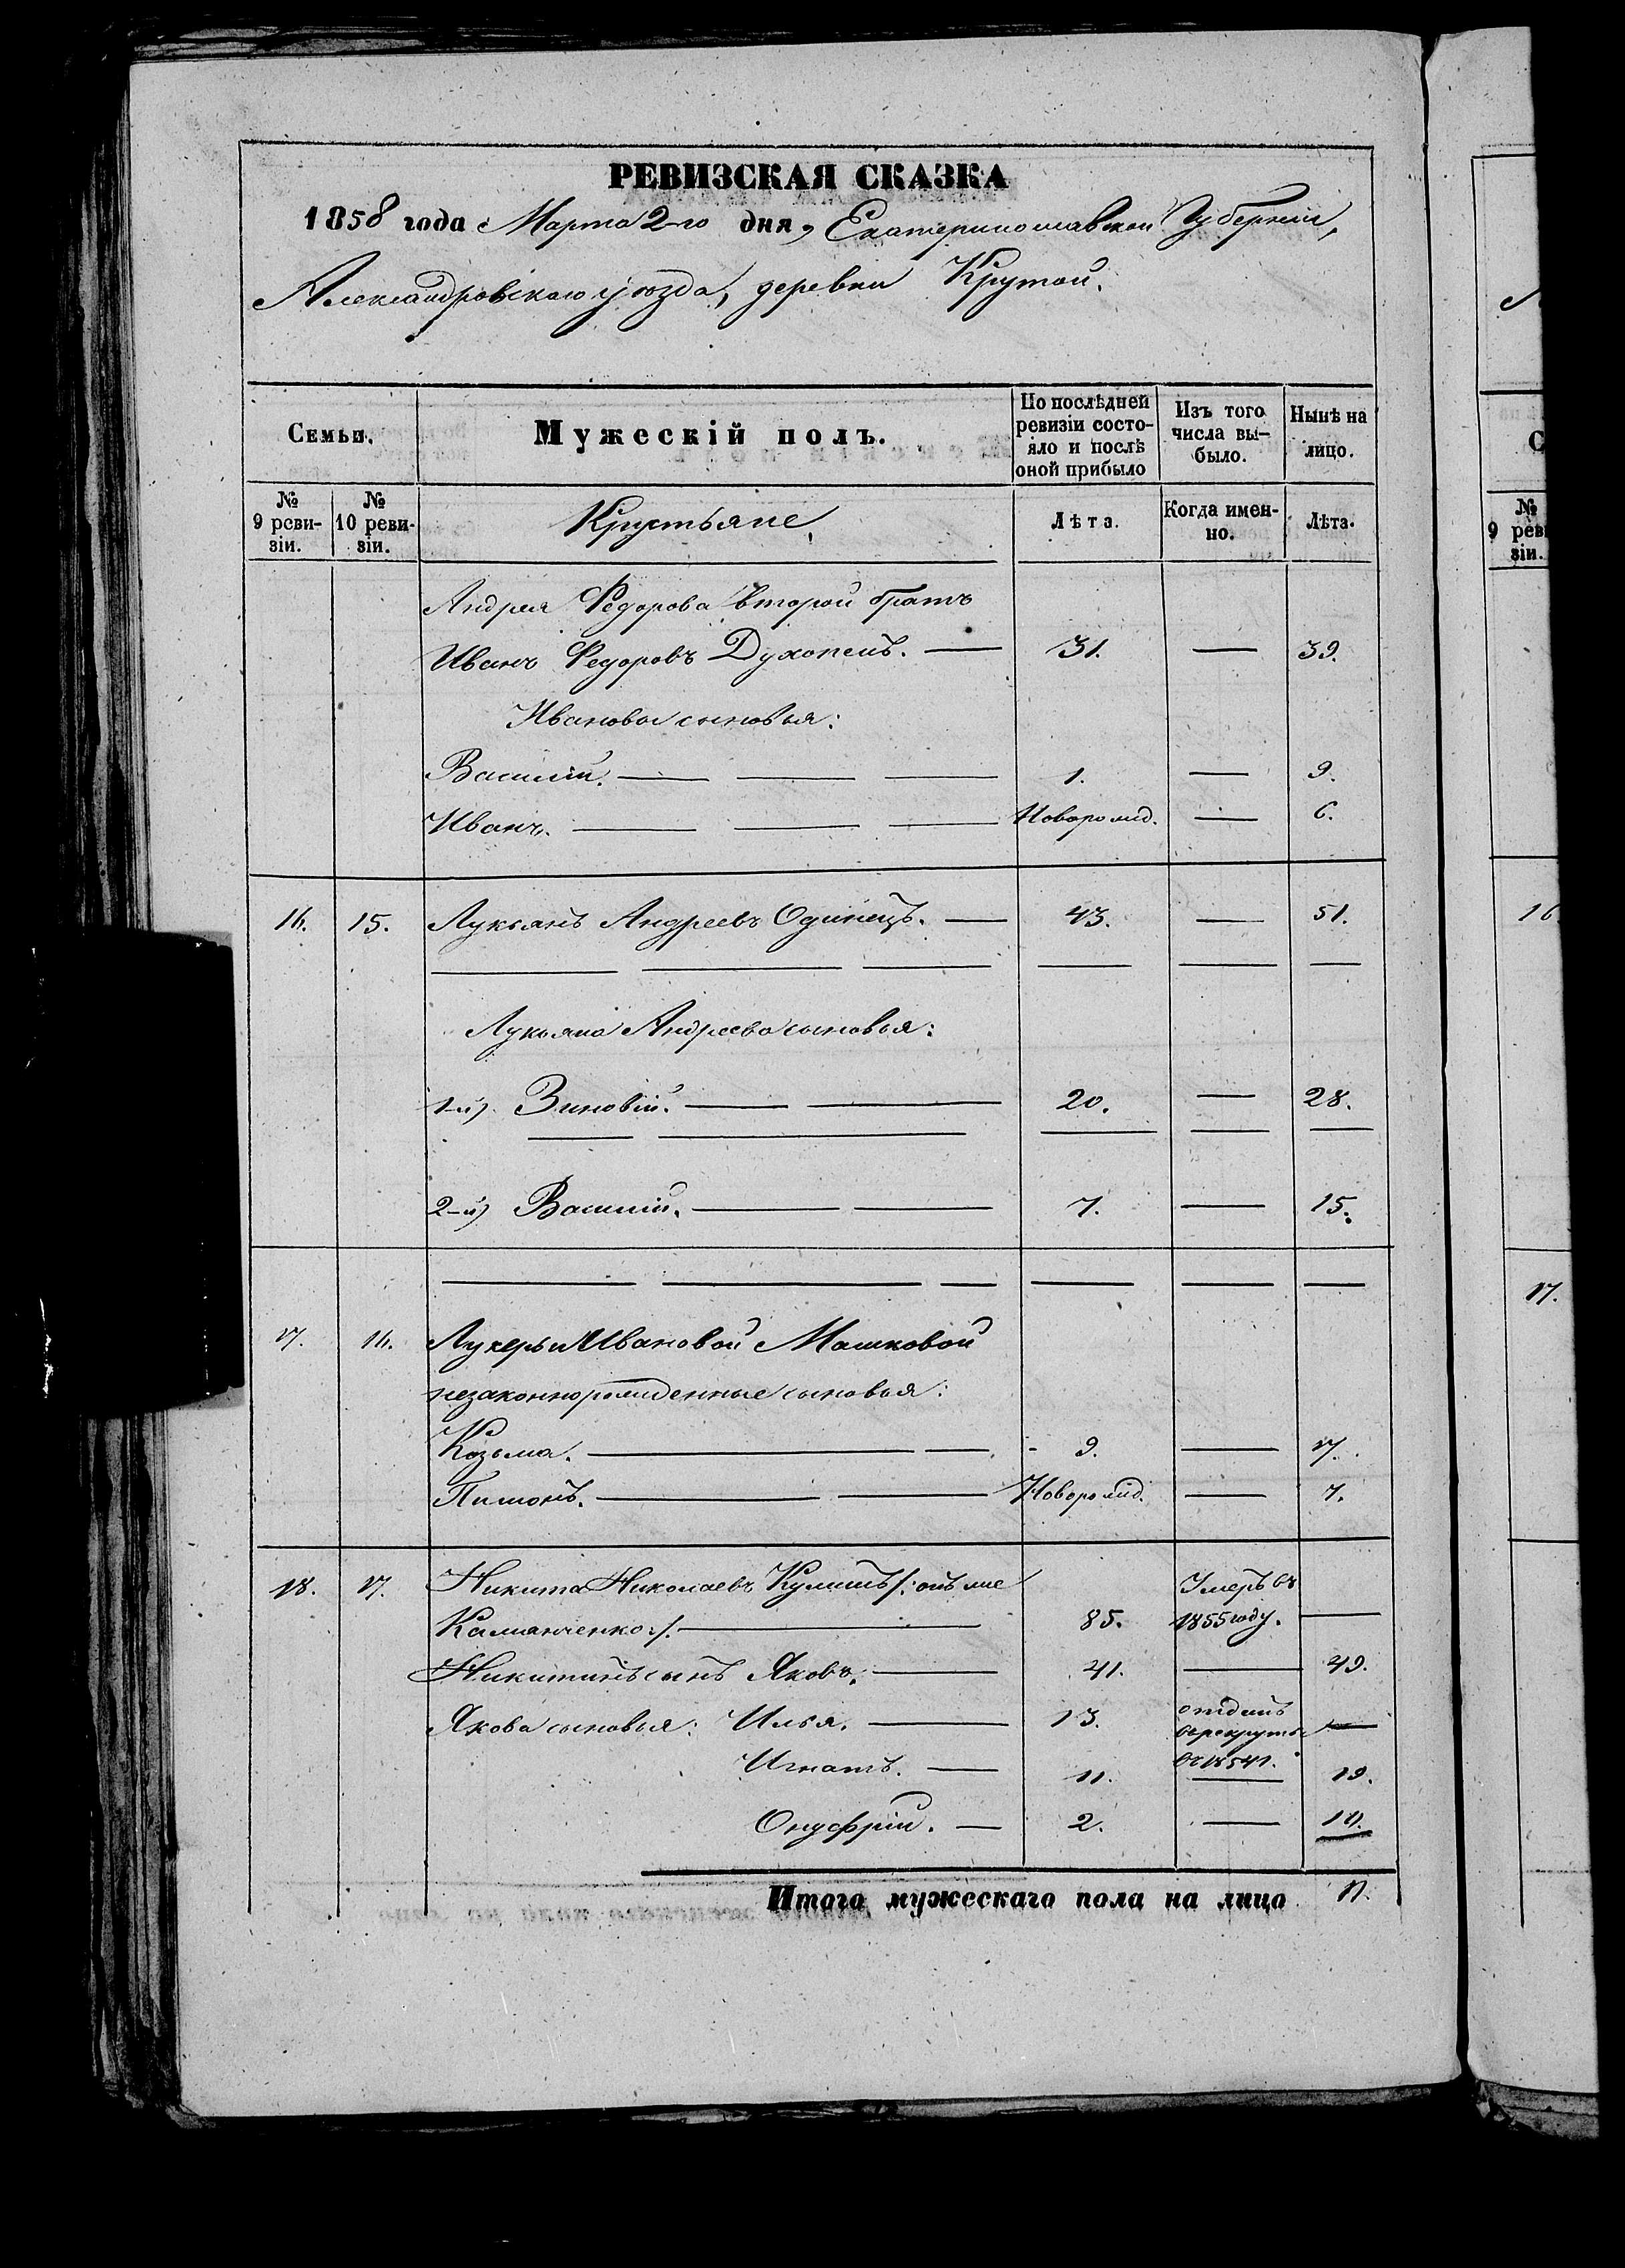 РЕВИЗСКАЯ СКАЗКА
1858 года Марта 2-го дня, Екатеринославской Губерніи,
Александровскаго уѣзда, деревни Крутой.
Семьи.
Мужескій полъ.
По послѣдней ревизіи состояло и послѣ оной прибыло
Изъ того числа выбыло.
Нынѣ на лицо.
№ 9 ревизіи.
№ 10 ревизіи.
Крестьяне,
Лѣта.
Когда именно.
Лѣта.
Андрея Федорова второй братъ
Иванъ Федоровъ — 31. — 39.
Ивановы сыновья:
Василій. — 1. — 9.
Иванъ. — Новорожд. — 6.
16. 15. Лукьянъ Андреевъ Одинецъ. — 43. — 51.
Лукьяна Андреева сыновья:
1-й) Зиновій. — 20. — 28.
2-й) Василій. — 7. — 15.
17. 16. Лукерьи Ивановой Машковой
незаконнорожденные сыновья:
Козьма. — 9. — 17.
Новорожд. — 7.
18. 17. Никита Николаевъ /: онъ же
85. Умеръ въ 1855 году. —
Никитинъ сынъ Яковъ. — 41. — 49.
Якова сыновья: Илья. — 13. отданъ въ рекруты въ 1854 г. —
Игнатъ. — 11. — 19.
Онуфрій. — 2. — 10.
Итого мужескаго пола на лицо 11.
16.
17.
№ 9 реви зіи.